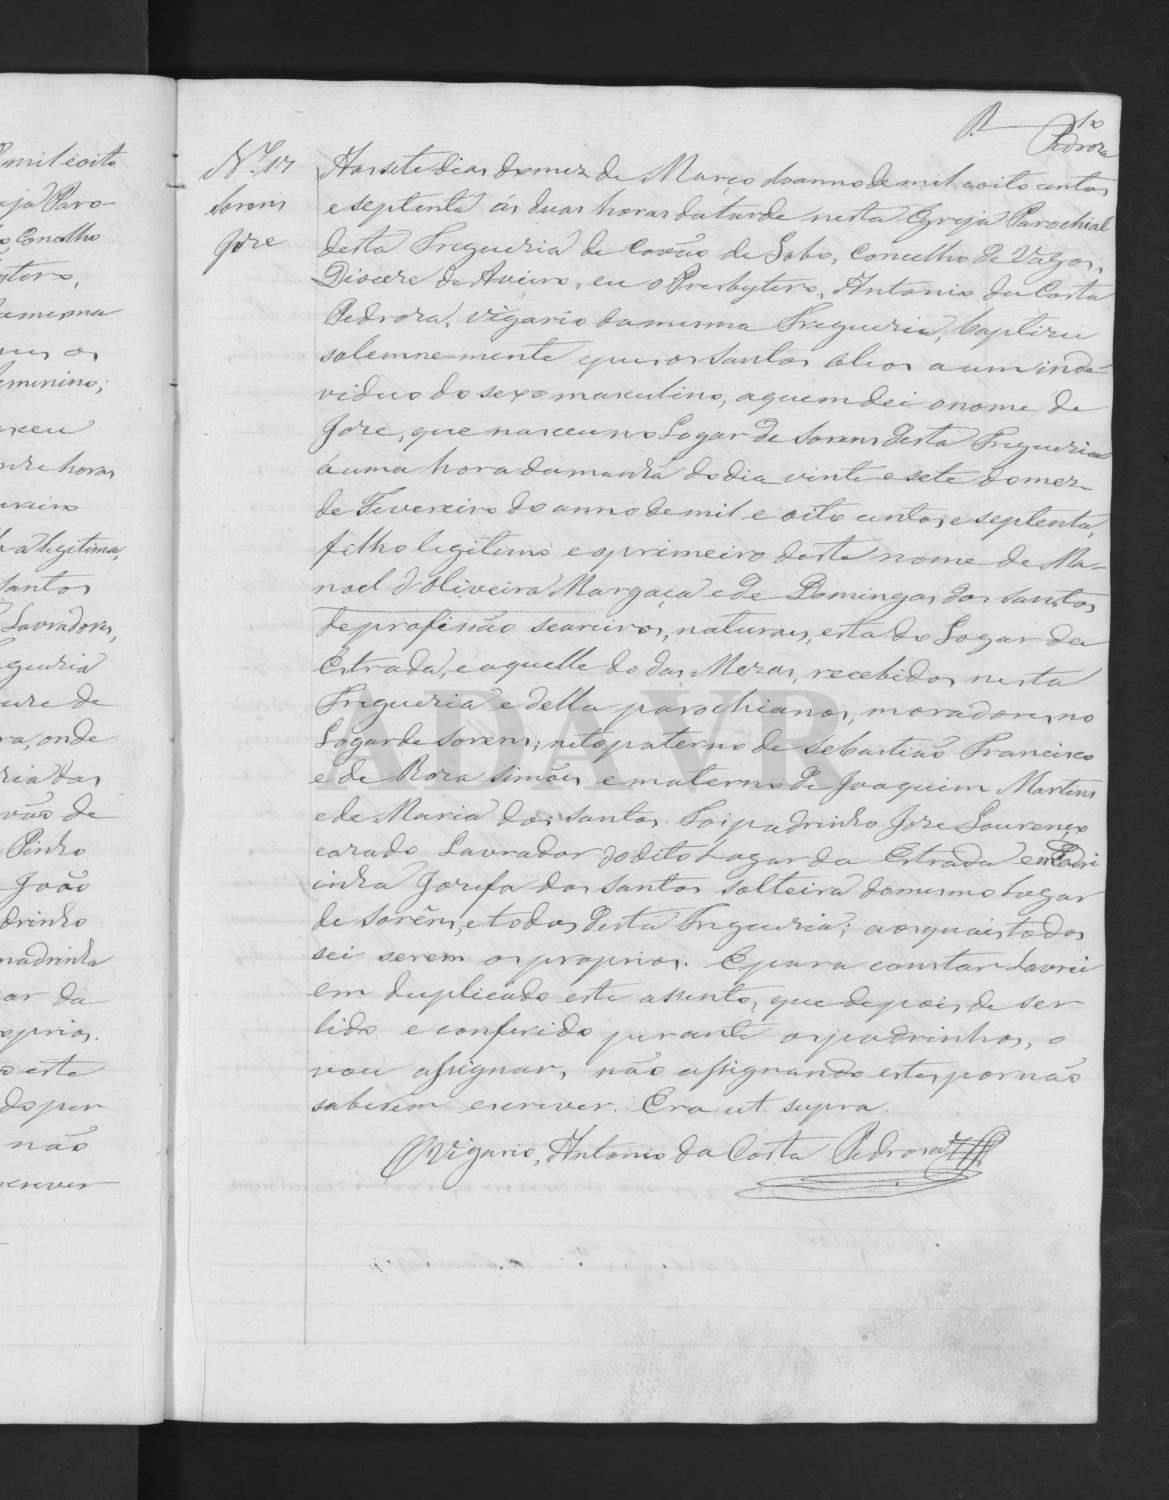 Pedroza
Nº 17
Sorens
Joze
Aos sete dias do mez de Março do anno de mil e oito centos
e septenta ás duas horas da tarde nesta Egreja Parochial
desta Freguezia de Covão do Lobo, Concelho de Vagos,
Diocere de Aveiro, eu o Presbytero, Antonio da Costa
Pedroza, vigario da mesma Freguezia, baptizei
solemne-mente e puz os Santos oleos a um indi-
viduo do sexo masculino, a quem dei o nome de
Joze, que nasceu no Logar de Sorens desta Freguezia
á uma hora da manhã do dia vinte e sete do mez
de Fevereiro do anno de mil e oito centos e septenta,
filho legitimo e o primeiro deste nome de Ma-
noel d'Oliveira Margaça e de Domingas dos Santos
de profissão seareiros, naturaes, esta do Logar da
Estrada, e aquelle do das Mezas, recebidos nesta
Freguezia e della parochianos, moradores no
Logar de Sorens; neto paterno de Sebastião Francisco
e de Roza Simões e materno de Joaquim Martins
e de Maria dos Santos. Foi padrinho Joze Lourenço
cazado Lavrador do dito Logar da Estrada e madri
inha Jozefa dos Santos solteira do mesmo Logar
de Sorêns, e todos desta Freguezia; aos quais todos
sei serem os proprios. E para constar Lavrei
em duplicado este assento, que depois de ser
lido e conferido perante os padrinhos, o
vou assignar, não assignando estes por não
saberem escrever. Era ut supra.
O Vigario, Antonio da Costa Pedroza
ADAVR
mil e oito
Paro-
Concelho
a mesma
feminino;
horas
legitima,
Santos
Lavradores,
de
onde
de
Pinho
João
drinho
madrinha
da
este
não